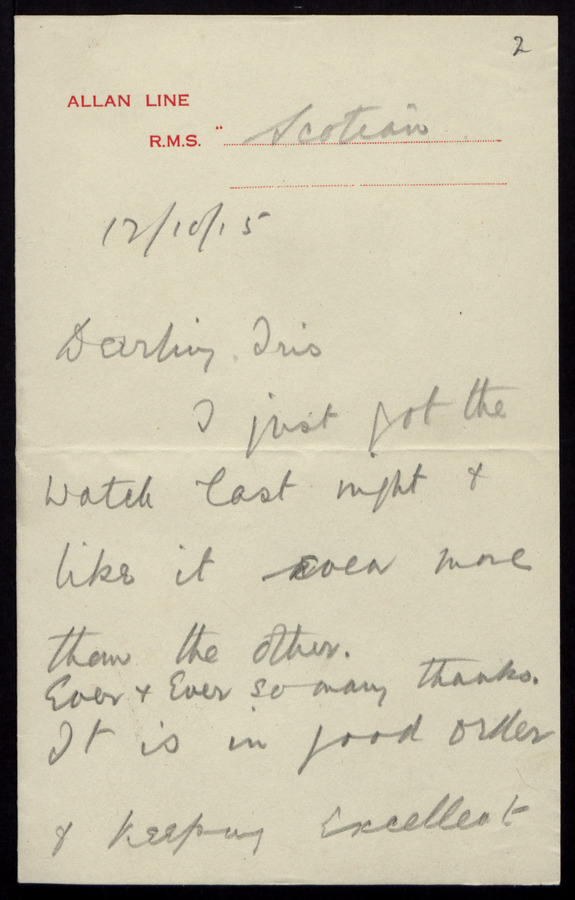 2
ALLAN LINE
R.M.S. " Scotian
12/10/15
Darling Iris
I just got the
watch last night &
like it even more
than the other.
Ever & Ever so many thanks.
It is in good order
& keeping excellent